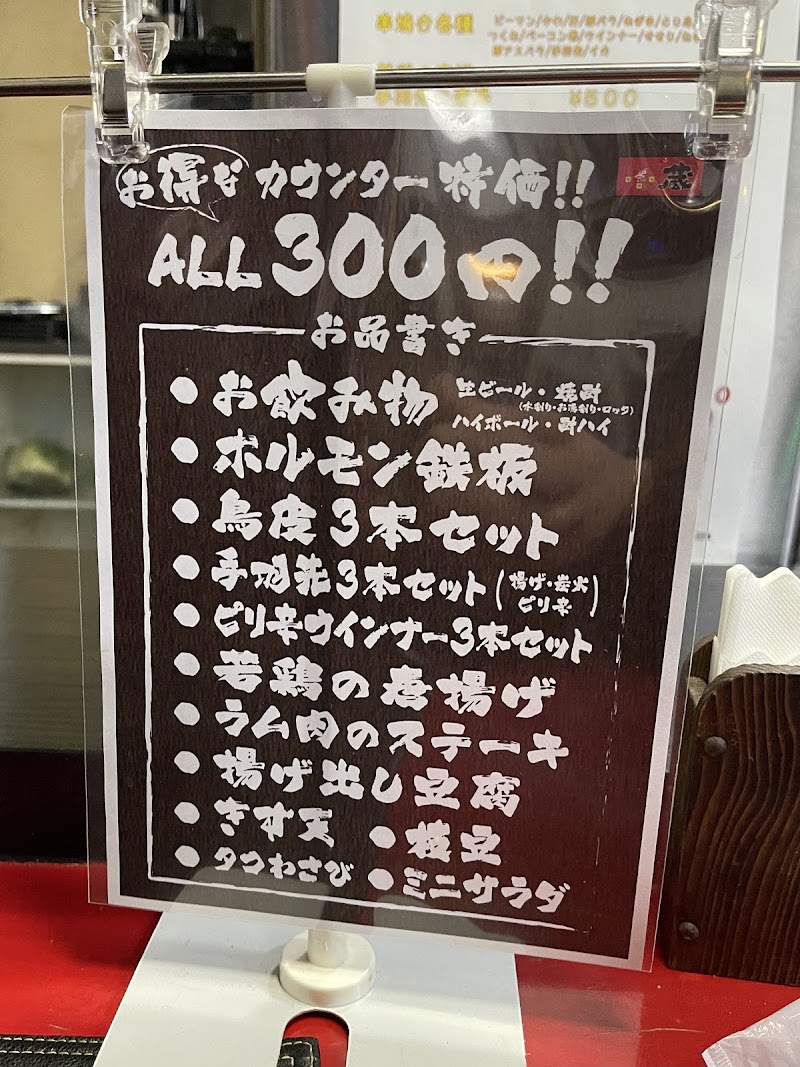 串焼き各種
ピーマン/かわ/豚バラ/ねぎま/とり
つくね/ベーコン/ウインナー/せせり
豚アスパラ/イカ
¥500
お得な カウンター特価!!
蔵
ALL 300円!!
お品書き
●お飲み物 生ビール・焼酎
(水割り・お湯割り・ロック)
ハイボール・酎ハイ
●ホルモン鉄板
●鳥皮3本セット
●手羽先3本セット(揚げ・炭火
ピリ辛)
●ピリ辛ウインナー3本セット
●若鶏の唐揚げ
●ラム肉のステーキ
●揚げ出し豆腐
●きす天 ●枝豆
●タコわさび ●ミニサラダ